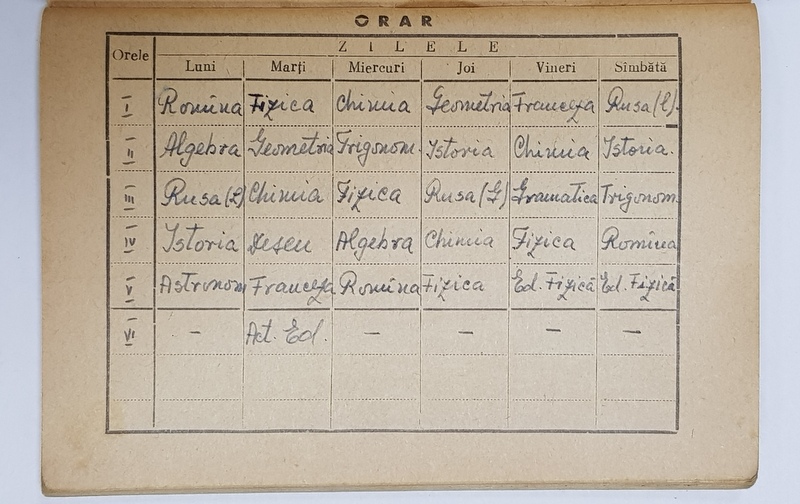 ORAR
Orele ZILELE
Luni Marți Miercuri Joi Vineri Sîmbătă
I Romîna Fizica Chimia Geometria Franceza Rusa (l).
II Algebra Geometria Trigonom. Istoria Chimia Istoria.
III Rusa (L) Chimia Fizica Rusa (G) Gramatica Trigonom.
IV Istoria Desen Algebra Chimia Fizica Romîna
V Astronom Franceza Romîna Fizica Ed. Fizică Ed. Fizică
VI — Act. Ed. — — — —